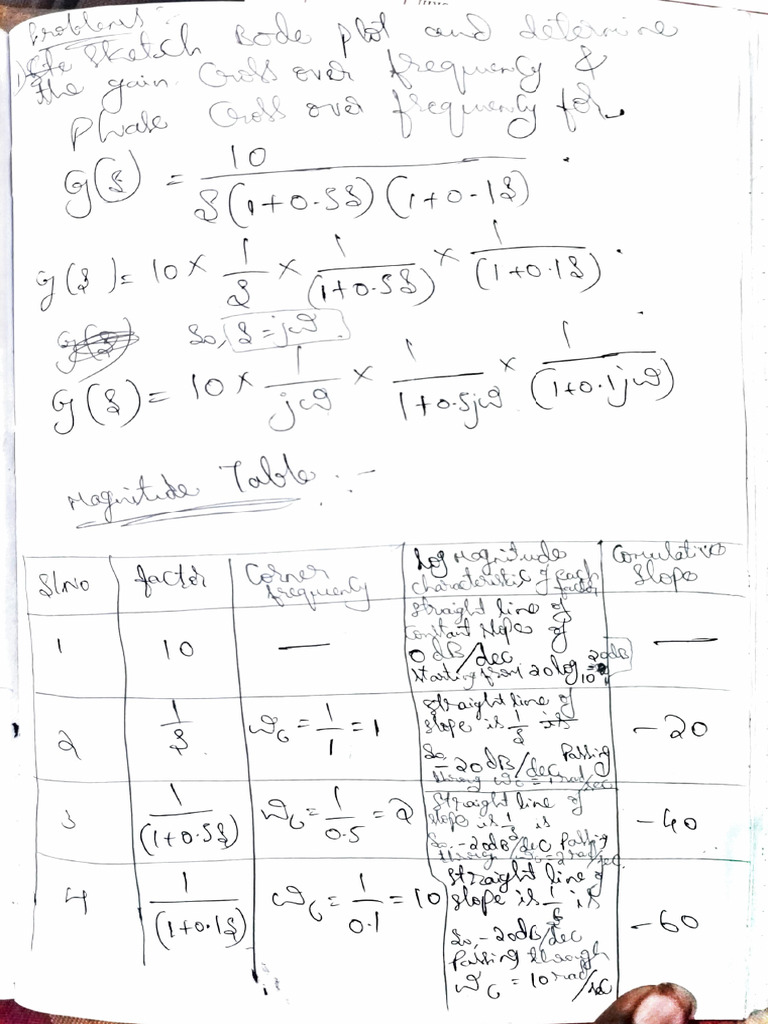 Problems :-
1) Sketch Bode plot and determine
the gain cross over frequency &
Phase cross over frequency for
G(s) = 10 / s(1+0.5s)(1+0.1s)
G(s) = 10 × 1/s × 1/(1+0.5s) × 1/(1+0.1s)
So, s = jω
G(s) = 10 × 1/jω × 1/1+0.5jω × 1/(1+0.1jω)
Magnitude Table :-
Sl.No | factor | Corner frequency | Log Magnitude characteristic of each factor | Comulative Slope
1 | 10 | — | Straight line of constant slope of 0 dB/dec starting from 20log 10 20dB | —
2 | 1/s | ωc = 1/1 = 1 | Straight line of slope is 1/s is So, -20dB/dec Passing through ωc = 1 rad/sec | -20
3 | 1/(1+0.5s) | ωc = 1/0.5 = 2 | Straight line of slope is 1/s is So, -20dB/dec Passing through ωc = 2 rad/sec | -40
4 | 1/(1+0.1s) | ωc = 1/0.1 = 10 | Straight line of slope is 1/s is So, -20dB/dec Passing through ωc = 10 rad/sec | -60